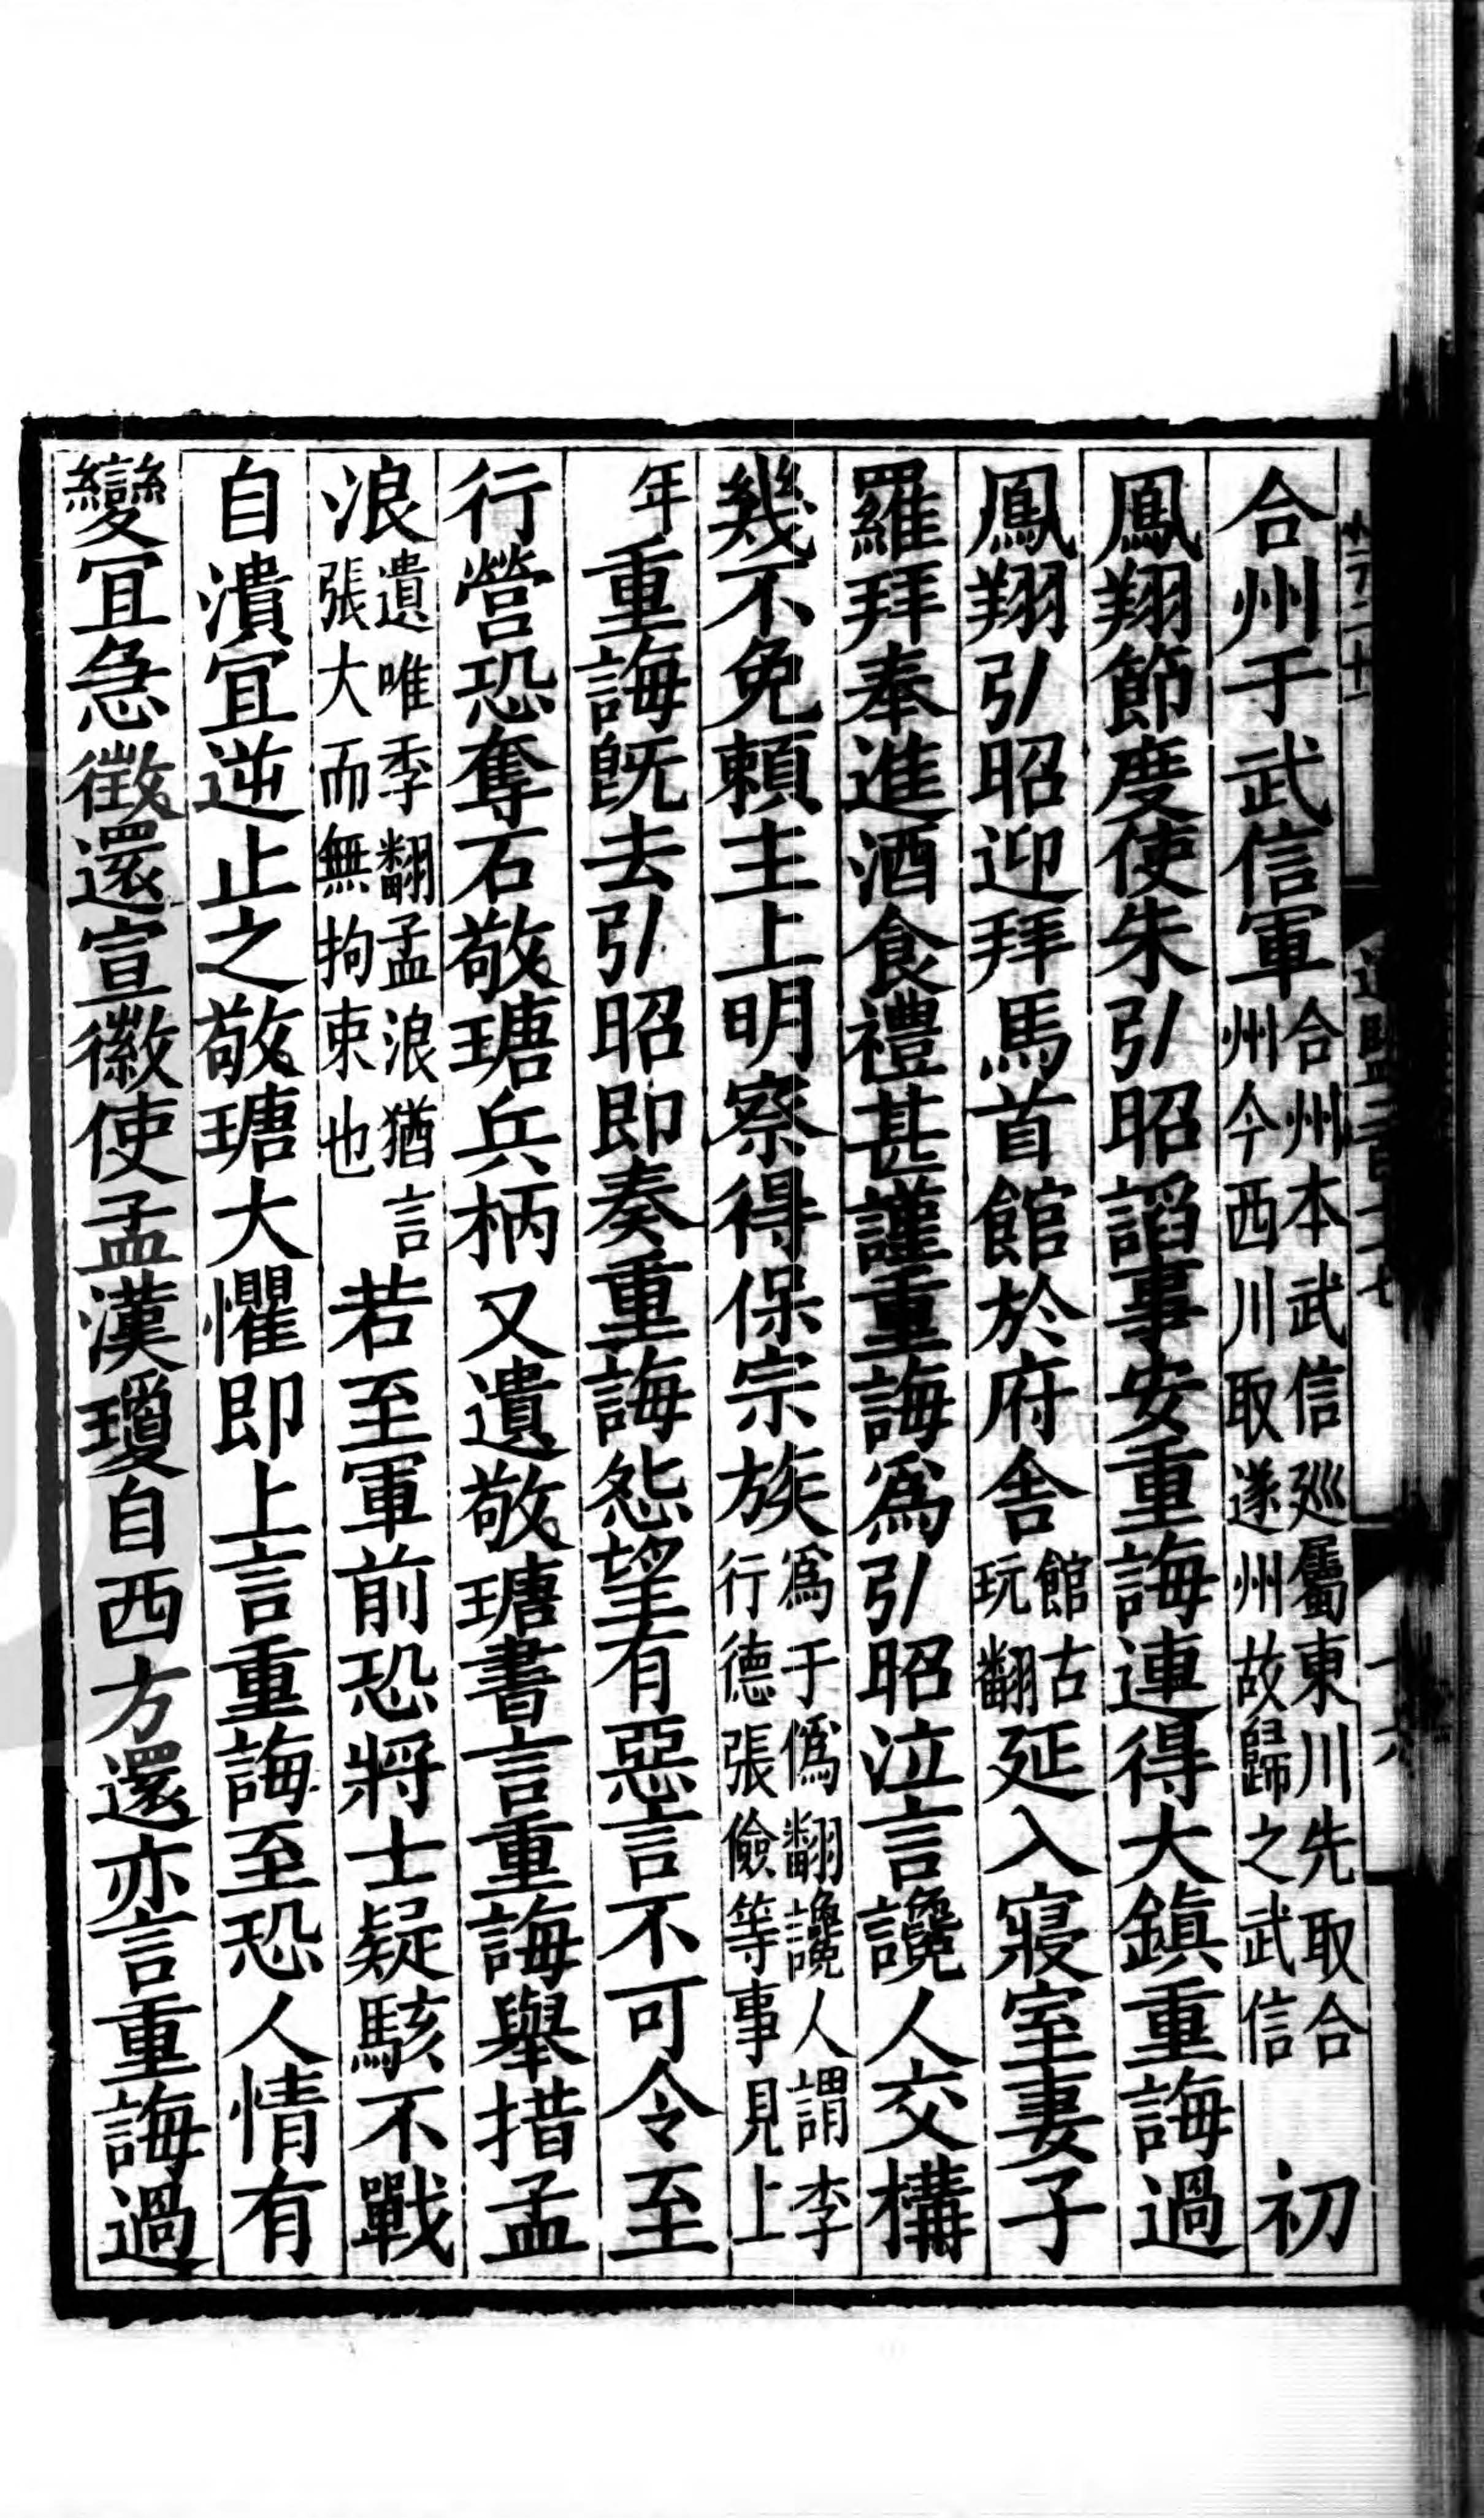 合州于武信軍合州本武信廵屬東川先取合州今西川取遂州故歸之武信初
鳳翔節度使朱引昭謟事安重誨連得大鎭重誨過
鳳翔引昭迎拜馬首館於府舎館古玩翻延入寢室妻子
羅拜奉進酒食禮甚謹重誨爲引昭泣言讒人交構
幾不免賴主上明察得保宗族爲于僞翻讒人謂李行德張儉等事見上
年重誨旣去引昭即奏重誨怨望有惡言不可令至
行營恐奪石敬瑭兵柄又遺敬瑭書言重誨舉措孟
浪遺唯季翻孟浪猶言張大而無拘束也若至軍前恐將士疑駭不戰
自潰宜逆止之敬瑭大懼即上言重誨至恐人情有
變宜急徵還宣徽使孟漢瓊自西方還亦言重誨過